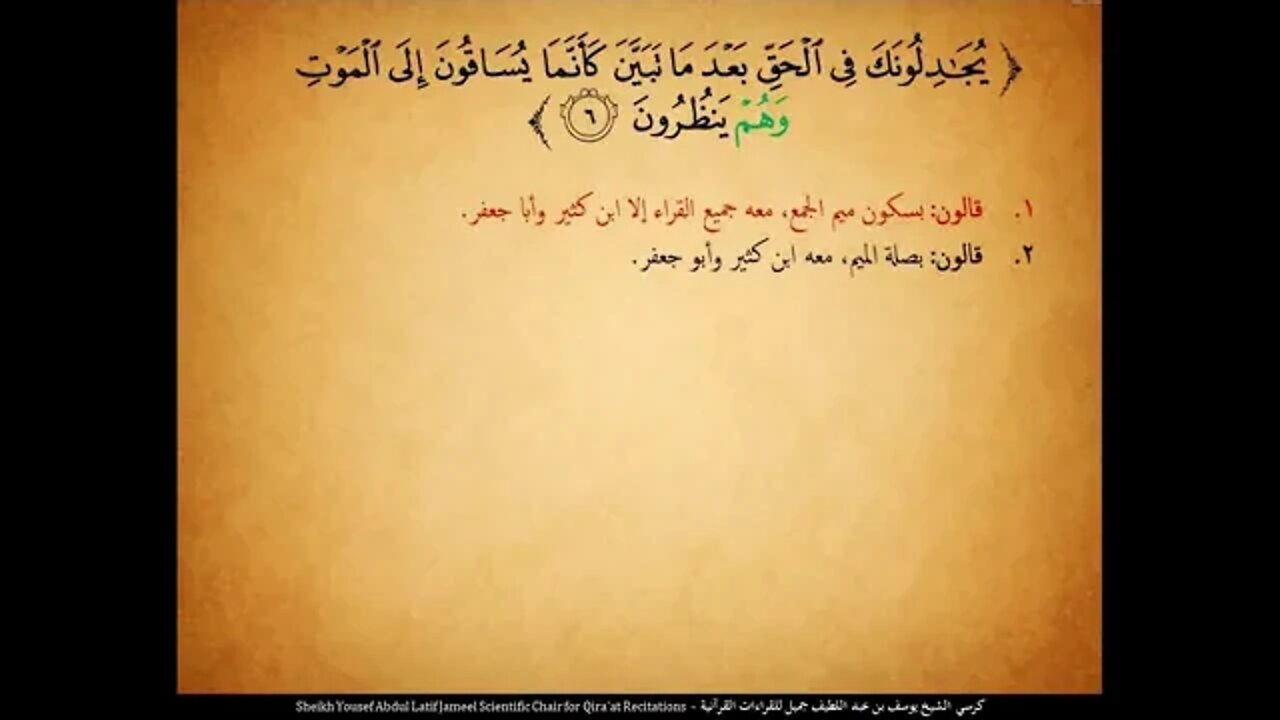 ﴿ يُجَٰدِلُونَكَ فِي ٱلْحَقِّ بَعْدَ مَا تَبَيَّنَ كَأَنَّمَا يُسَاقُونَ إِلَى ٱلْمَوْتِ
وَهُمْ يَنظُرُونَ ٦ ﴾
١. قالون: بسكون ميم الجمع، معه جميع القراء إلا ابن كثير وأبا جعفر.
٢. قالون: بصلة الميم، معه ابن كثير وأبو جعفر.
Sheikh Yousef Abdul Latif Jameel Scientific Chair for Qira'at Recitations - كرسي الشيخ يوسف بن عبد اللطيف جميل للقراءات القرآنية